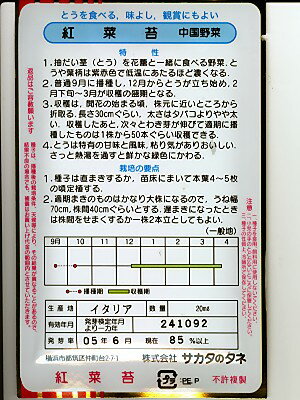 とうを食べる、味よし、観賞にもよい
紅菜苔 中国野菜
特性
1. 抽だい茎（とう）を花蕾と一緒に食べる野菜。と
うや葉柄は紫赤色で低温にあたるほど濃くなる。
2. 普通9月に播種し、12月からとうが立ち始め、2
月下旬〜3月が収穫の盛期となる。
3. 収穫は、開花の始まる頃、株元に近いところから
折取る。長さ30cmぐらい、太さはタバコよりやや太
い。収穫したあと、次々とわき芽が伸びて適期に播
種したものは1株から50本ぐらい収穫できる。
4. とうは特有の甘味と風味、粘り気がありおいしい。
さっと熱湯を通すと鮮かな緑色にかわる。
栽培の要点
1. 種子は直まきするか、苗床にまいて本葉4〜5枚
の頃定植する。
2. 適期まきのものはかなり大株になるので、うね幅
70cm、株間40cmぐらいとする。遅まきになったときは
株間をせまくするか一株2本立としてもよい。
（一般地）
9月 10 11 12 1 2 3 4
播種期 収穫期
生産地 イタリア 数量 20mℓ
有効年月 発芽検定年月より一カ年 241092
発芽率 05年6月 現在 85%以上
横浜市都筑区仲町台2-7-1 株式会社 サカタのタネ
紅菜苔 PE,P 不許複製
返品はご容赦願います